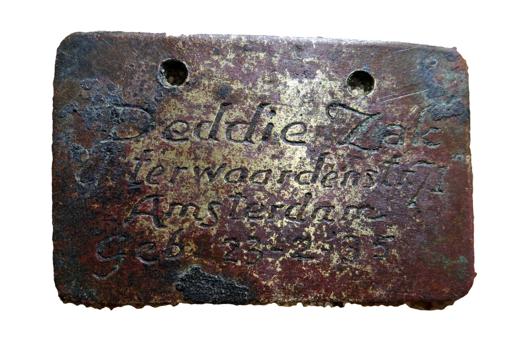 Deddie Zak
Uiterwaardenstr
Amsterdam
Geb 23-2-35